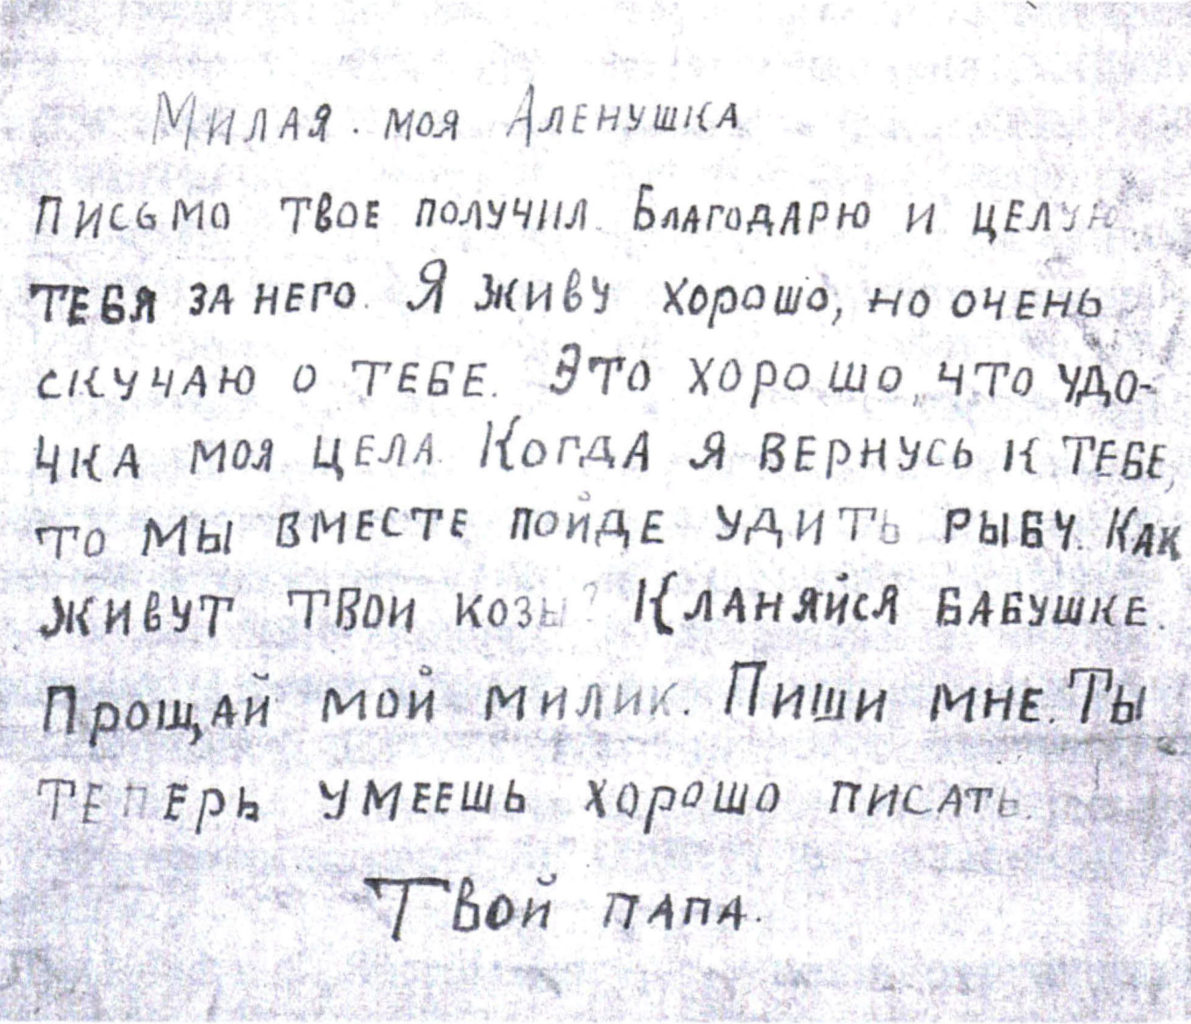 Милая моя Аленушка
Письмо твое получил. Благодарю и целую
тебя за него. Я живу хорошо, но очень
скучаю о тебе. Это хорошо, что удо-
чка моя цела. Когда я вернусь к тебе,
то мы вместе пойде удить рыбу. Как
живут твои козы? Кланяйся бабушке.
Прощай мой милик. Пиши мне. Ты
теперь умеешь хорошо писать.
Твой папа.